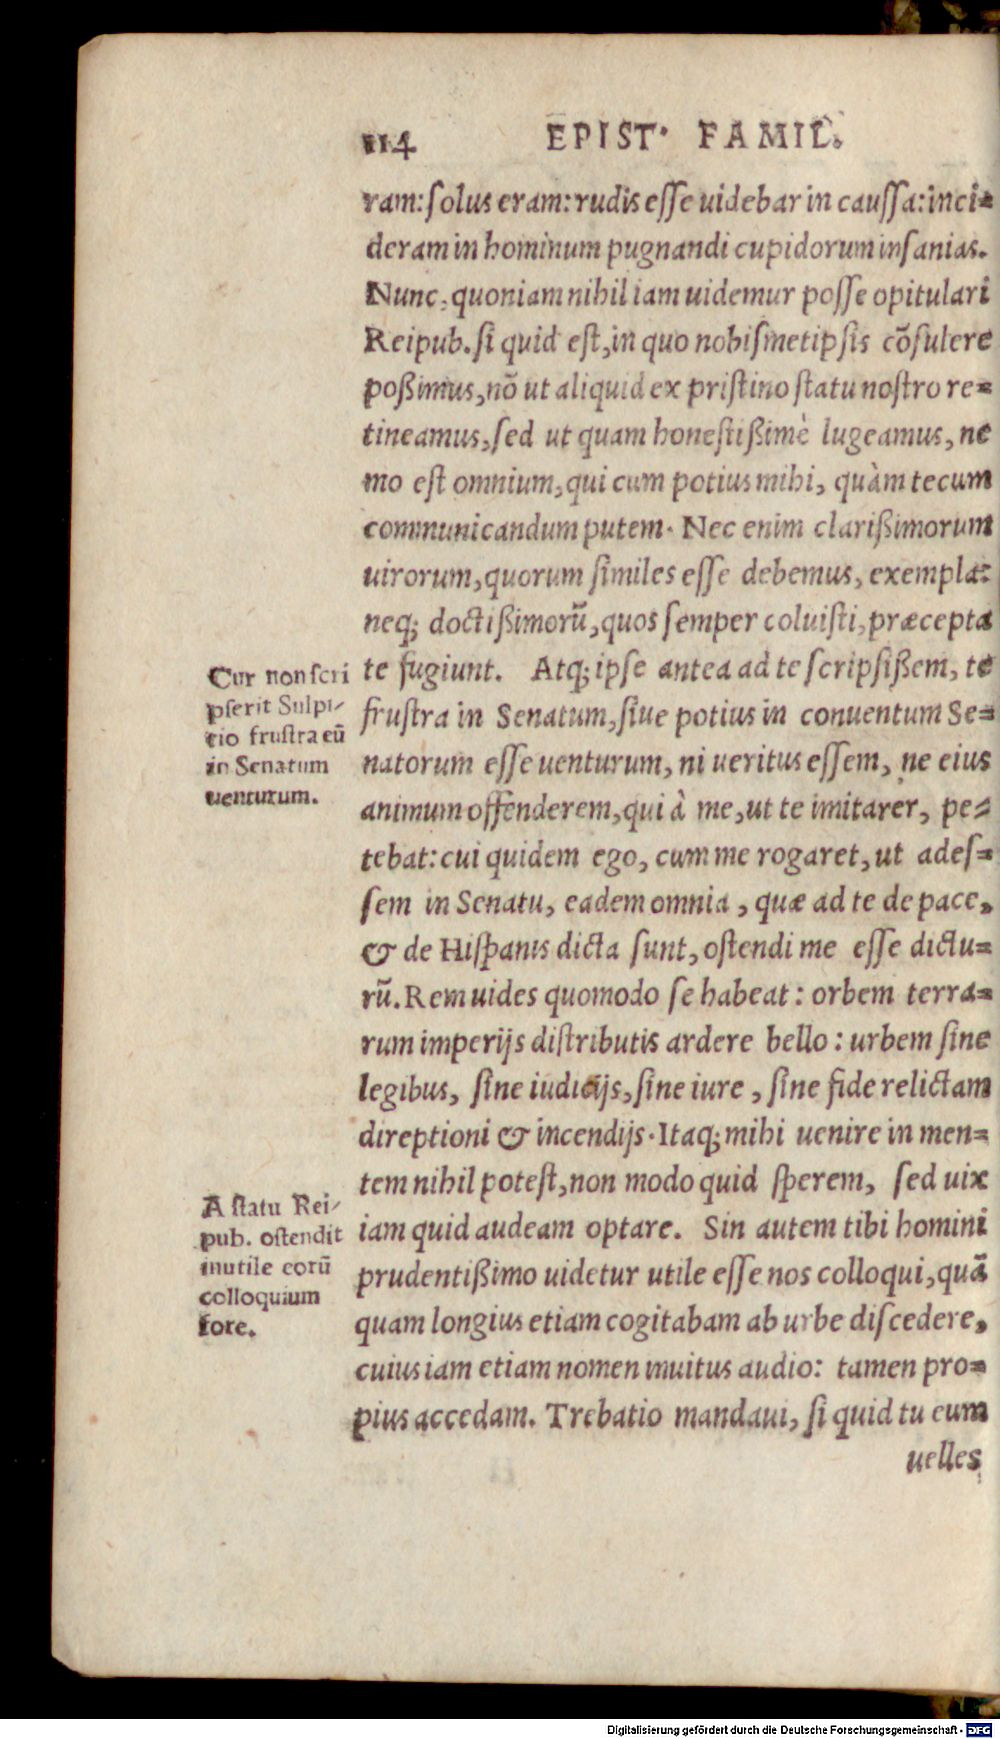 114 EPIST. FAMIL.
ram: solus eram: rudis esse uidebar in caussa: inci=
deram in hominum pugnandi cupidorum insanias.
Nunc, quoniam nihil iam uidemur posse opitulari
Reipub. si quid est, in quo nobismetipsis cõsulere
poßimus, nõ ut aliquid ex pristino statu nostro re=
tineamus, sed ut quam honestißimè lugeamus, ne
mo est omnium, qui cum potius mihi, quàm tecum
communicandum putem. Nec enim clarißimorum
uirorum, quorum similes esse debemus, exempla:
neq; doctißimorũ, quos semper coluisti, præcepta
te fugiunt. Atq; ipse antea ad te scripsißem, te
frustra in Senatum, siue potius in conuentum Se=
natorum esse uenturum, ni ueritus essem, ne eius
animum offenderem, qui à me, ut te imitarer, pe=
tebat: cui quidem ego, cum me rogaret, ut ades=
sem in Senatu, eadem omnia, quæ ad te de pace,
& de Hispanis dicta sunt, ostendi me esse dictu=
rũ. Rem uides quomodo se habeat: orbem terra=
rum imperijs distributis ardere bello: urbem sine
legibus, sine iudicijs, sine iure, sine fide relictam
direptioni & incendijs. Itaq; mihi uenire in men=
tem nihil potest, non modo quid sperem, sed uix
iam quid audeam optare. Sin autem tibi homini
prudentißimo uidetur utile esse nos colloqui, quã
quam longius etiam cogitabam ab urbe discedere,
cuius iam etiam nomen inuitus audio: tamen pro=
pius accedam. Trebatio mandaui, si quid tu eum
uelles
Cur non scri
pserit Sulpi-
tio frustra eũ
in Senatum
uenturum.
A statu Rei-
pub. ostendit
inutile eorũ
colloquium
fore.
Digitalisierung gefördert durch die Deutsche Forschungsgemeinschaft - DFG